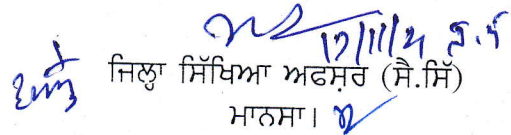 17/11/21
ਜਿਲ੍ਹਾ ਸਿੱਖਿਆ ਅਫਸ਼ਰ (ਸੈ.ਸਿੱ)
ਮਾਨਸਾ।